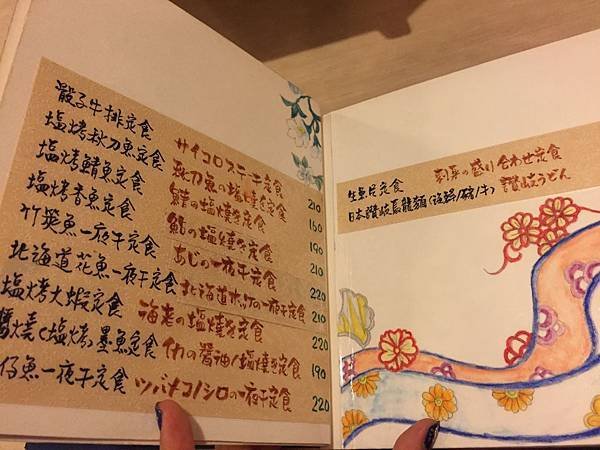 骰子牛排定食 サイコロステーキ定食 210
塩烤秋刀魚定食 秋刀魚の塩焼き定食 160
塩烤鯖魚定食 鯖の塩焼き定食 190
塩烤香魚定食 鮎の塩焼き定食 210
竹筴魚一夜干定食 あじの一夜干定食 220
北海道花魚一夜干定食 北海道ホッケの一夜干定食 210
塩烤大蝦定食 海老の塩焼き定食 220
醬燒(塩烤)墨魚定食 イカの醤油/塩焼き定食 190
仔魚一夜干定食 ツバメコノシロの一夜干定食 220
生魚片定食 刺身の盛り合わせ定食
日本讚岐烏龍麵 讚岐うどん